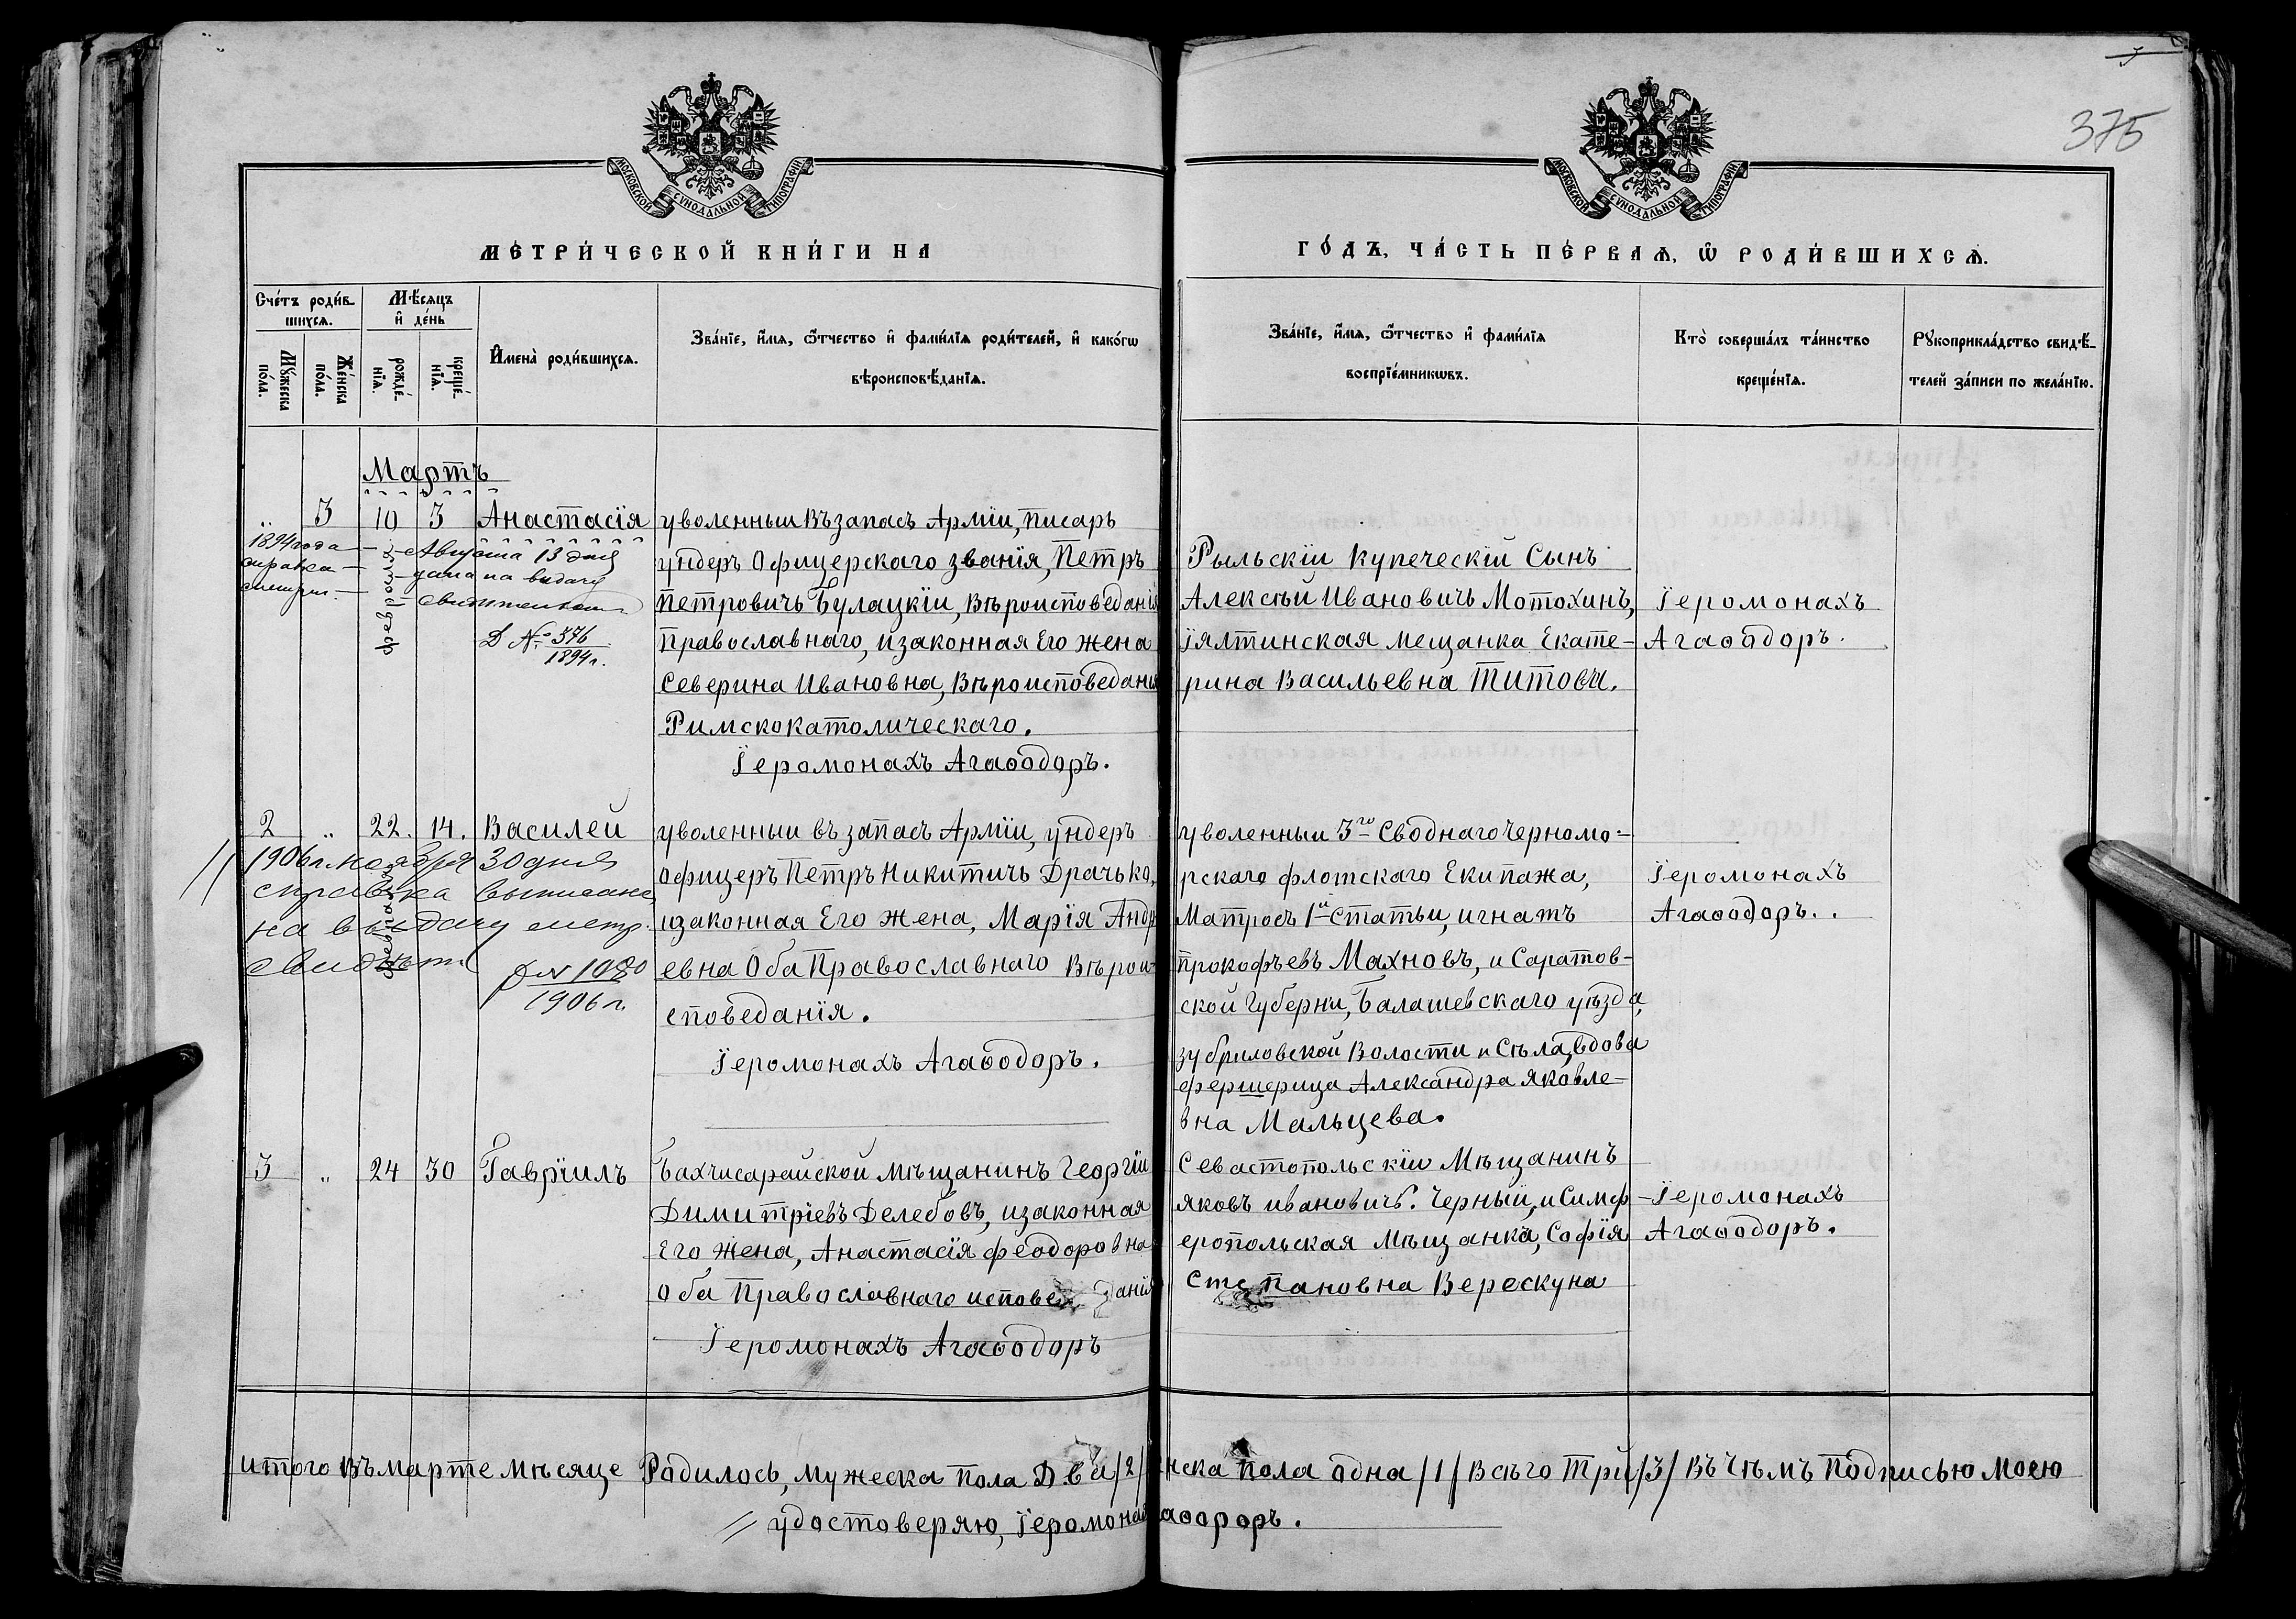 375
МОСКОВСКОЙ СУНОДАЛЬНОЙ ТИПОГРАФІИ
МОСКОВСКОЙ СУНОДАЛЬНОЙ ТИПОГРАФІИ
МЕ́ТРИ́ЧЕСКОЙ КНИ́ГИ НА
ГО́ДЪ, ЧА́СТЬ ПЕ́РВАѦ, Ѡ҆ РОДИ́ВШИХСѦ.
Сче́тъ роди́в-
шихсѧ.
Мꙋ́жеска
по́ла.
Же́нска
по́ла.
Мѣ́сѧцъ
и҆ де́нь
рожде́-
нїѧ.
креще́-
нїѧ.
И҆мена̀ роди́вшихсѧ.
Зва́нїе, и҆́мѧ, ѻ҆́тчество и҆ фами́лїѧ роди́телей, и҆ како́гѡ
вѣроисповѣ́данїѧ.
Зва́нїе, и҆́мѧ, ѻ҆́тчество и҆ фами́лїѧ
воспрїе́мникѡвъ.
Кто̀ соверша́лъ та́инство
креще́нїѧ.
Рꙋкоприкла́дство свидѣ́-
телей за́писи по жела́нїю.
Мартъ
3 10 3 Анастасїя
1894 года Августа 13 дня
справка дана на выдачу
февраля
D № 376
1894 г.
уволенныи Въ запасъ Армїи, писарь
ундеръ Офицерскаго званїя, Петръ
Петровичъ Булацкїи, Вѣроисповеданїя
Православнаго, изаконная Его жена
Северина Ивановна, Вѣроисповеданїя
Римскокатолическаго.
Їеромонахъ Агаѳодоръ.
Рыльскїи Купеческїй Сынъ
Алексѣй Ивановичъ Мотохинъ,
Їялтинская мещанка Екате-
рина Васильевна Титова.
Їеромонахъ
Агаѳодоръ.
2 „ 22. 14. Василеи
1906 г. ноября 30 дня
справка выписана
на выдачу метр.
свидѣт.
№ 1080
1906 г.
уволенныи въ запасъ Армїи, ундеръ
офицеръ Петръ Никитичъ Драчько,
изаконная Его жена, Марїя Андр
евна Оба Православнаго Вѣрои-
споведанїя.
Їеромонахъ Агаѳодоръ.
уволенныи 3го Своднаго Черномо-
рскаго флотскаго Екипажа,
Матросъ 1й Статьи, игнатъ
прокофъевъ Махновъ, и Саратов-
ской Губерни, Балашевскаго уѣзда,
зубриловской Волости и Сѣла, вдова
фершерица Александра Яковле-
вна Мальцева.
Їеромонахъ
Агаѳодоръ..
3 „ 24 30 Гаврїилъ
Бахчисарайской Мѣщанинъ Георгїи
Димитрїевъ Делебовъ, изаконная
Его жена, Анастасїя феодоровна
оба Православнаго исповеданїя
Їеромонахъ Агаѳодоръ
Севастопольскїи Мѣщанинъ
яковъ ивановичъ. Черный, и Симф
еропольская Мѣщанка, Софїя
Степановна Верескуна
Їеромонахъ
Агаѳодоръ.
итого Въ марте мѣсяце Родилось, мужеска пола Два /2/ нска пола одна /1/ Всѣго Три /3/ Въ Чѣмъ Подписью Моею
удостоверяю, Їеромонах аѳороръ.